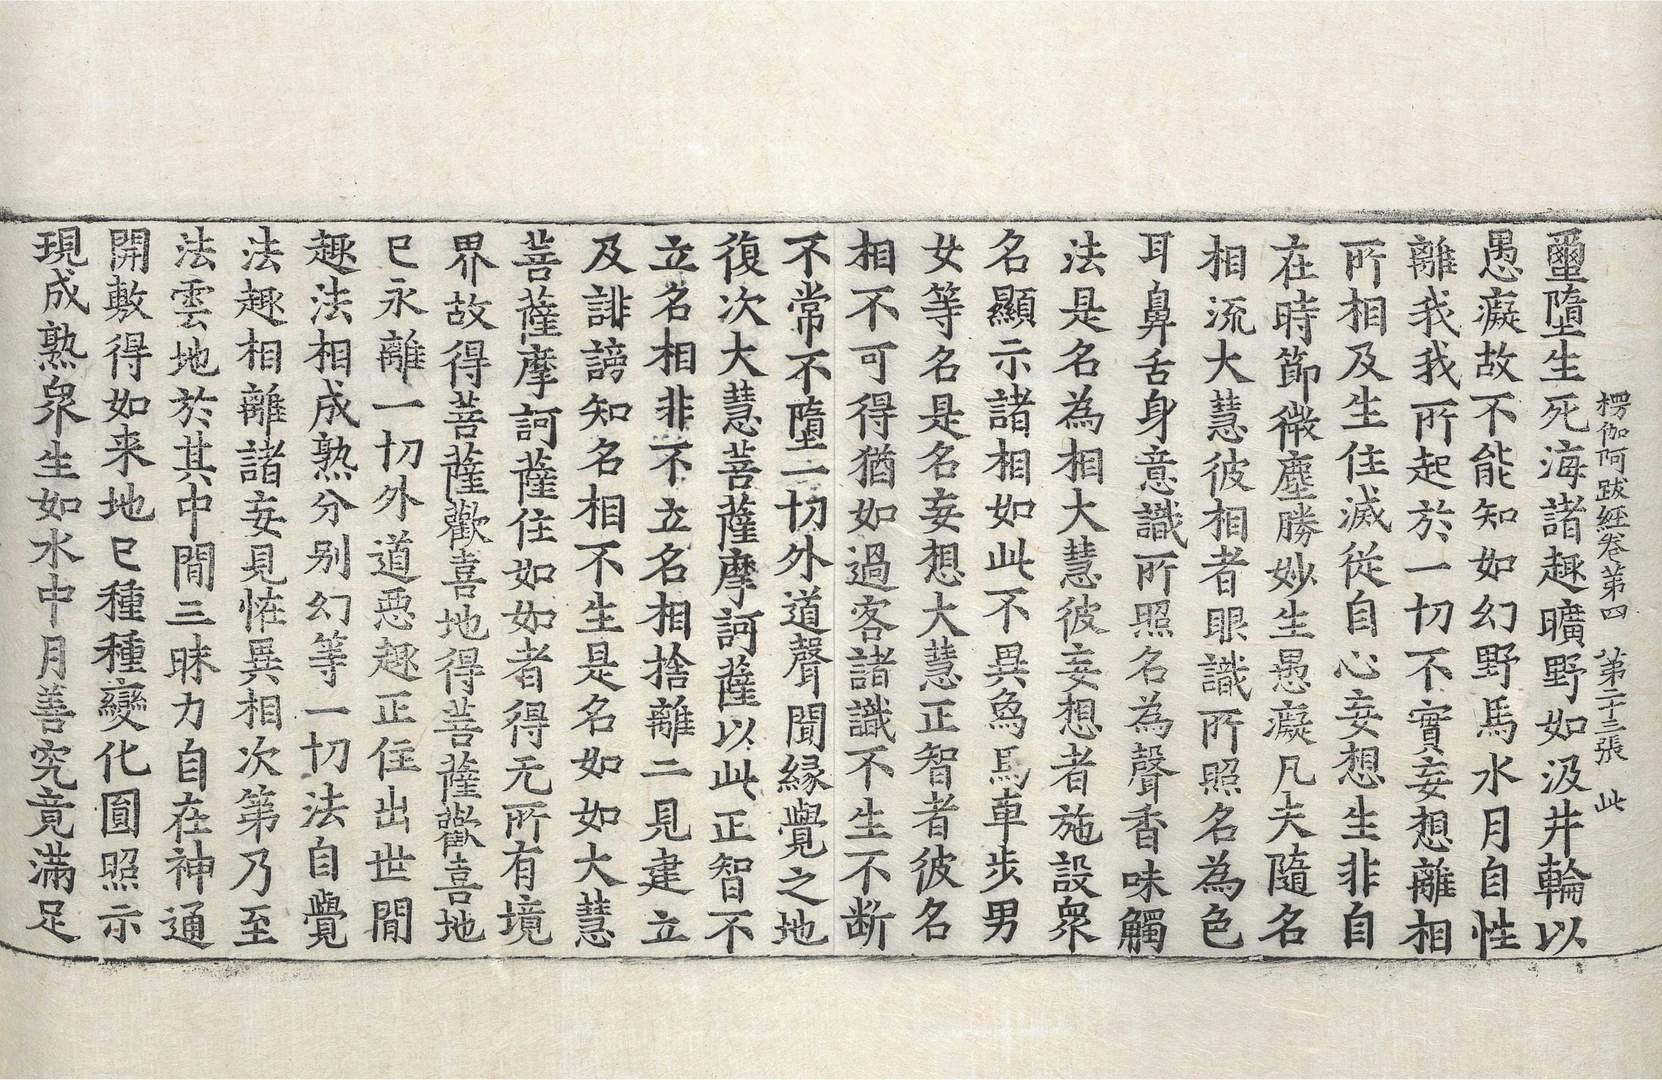 楞伽阿跋經卷第四　第二十三張　此
壐墮生死海諸趣曠野如汲井輪以
愚癡故不能知如幻野馬水月自性
離我我所起於一切不實妄想離相
所相及生住滅從自心妄想生非自
在時節微塵勝妙生愚癡凡夫隨名
相流大慧彼相者眼識所照名為色
耳鼻舌身意識所照名為聲香味觸
法是名為相大慧彼妄想者施設衆
名顯示諸相如此不異象馬車步男
女等名是名妄想大慧正智者彼名
相不可得猶如過客諸識不生不断
不常不墮一切外道聲聞緣覺之地
復次大慧菩薩摩訶薩以此正智不
立名相非不立名相捨離二見建立
及誹謗知名相不生是名如如大慧
菩薩摩訶薩住如如者得无所有境
界故得菩薩歡喜地得菩薩歡喜地
已永離一切外道惡趣正住出世間
趣法相成熟分别幻等一切法自覺
法趣相離諸妄見恠異相次第乃至
法雲地於其中間三昧力自在神通
開敷得如来地已種種變化圓照示
現成熟衆生如水中月善究竟滿足